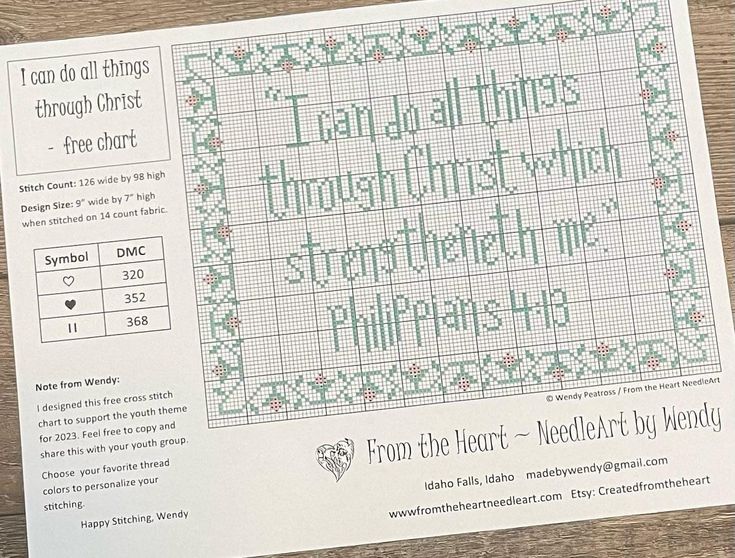 I can do all things
through Christ
- free chart
Stitch Count: 126 wide by 98 high
Design Size: 9" wide by 7" high
when stitched on 14 count fabric.
Symbol DMC
♡ 320
♥ 352
II 368
Note from Wendy:
I designed this free cross stitch
chart to support the youth theme
for 2023. Feel free to copy and
share this with your youth group.
Choose your favorite thread
colors to personalize your
stitching.
Happy Stitching, Wendy
"I can do all things
through Christ which
strengtheneth me."
Philippians 4:13
© Wendy Peatross / From the Heart NeedleArt
From the Heart ~ NeedleArt by Wendy
Idaho Falls, Idaho madebywendy@gmail.com
www.fromtheheartneedleart.com Etsy: Createdfromtheheart